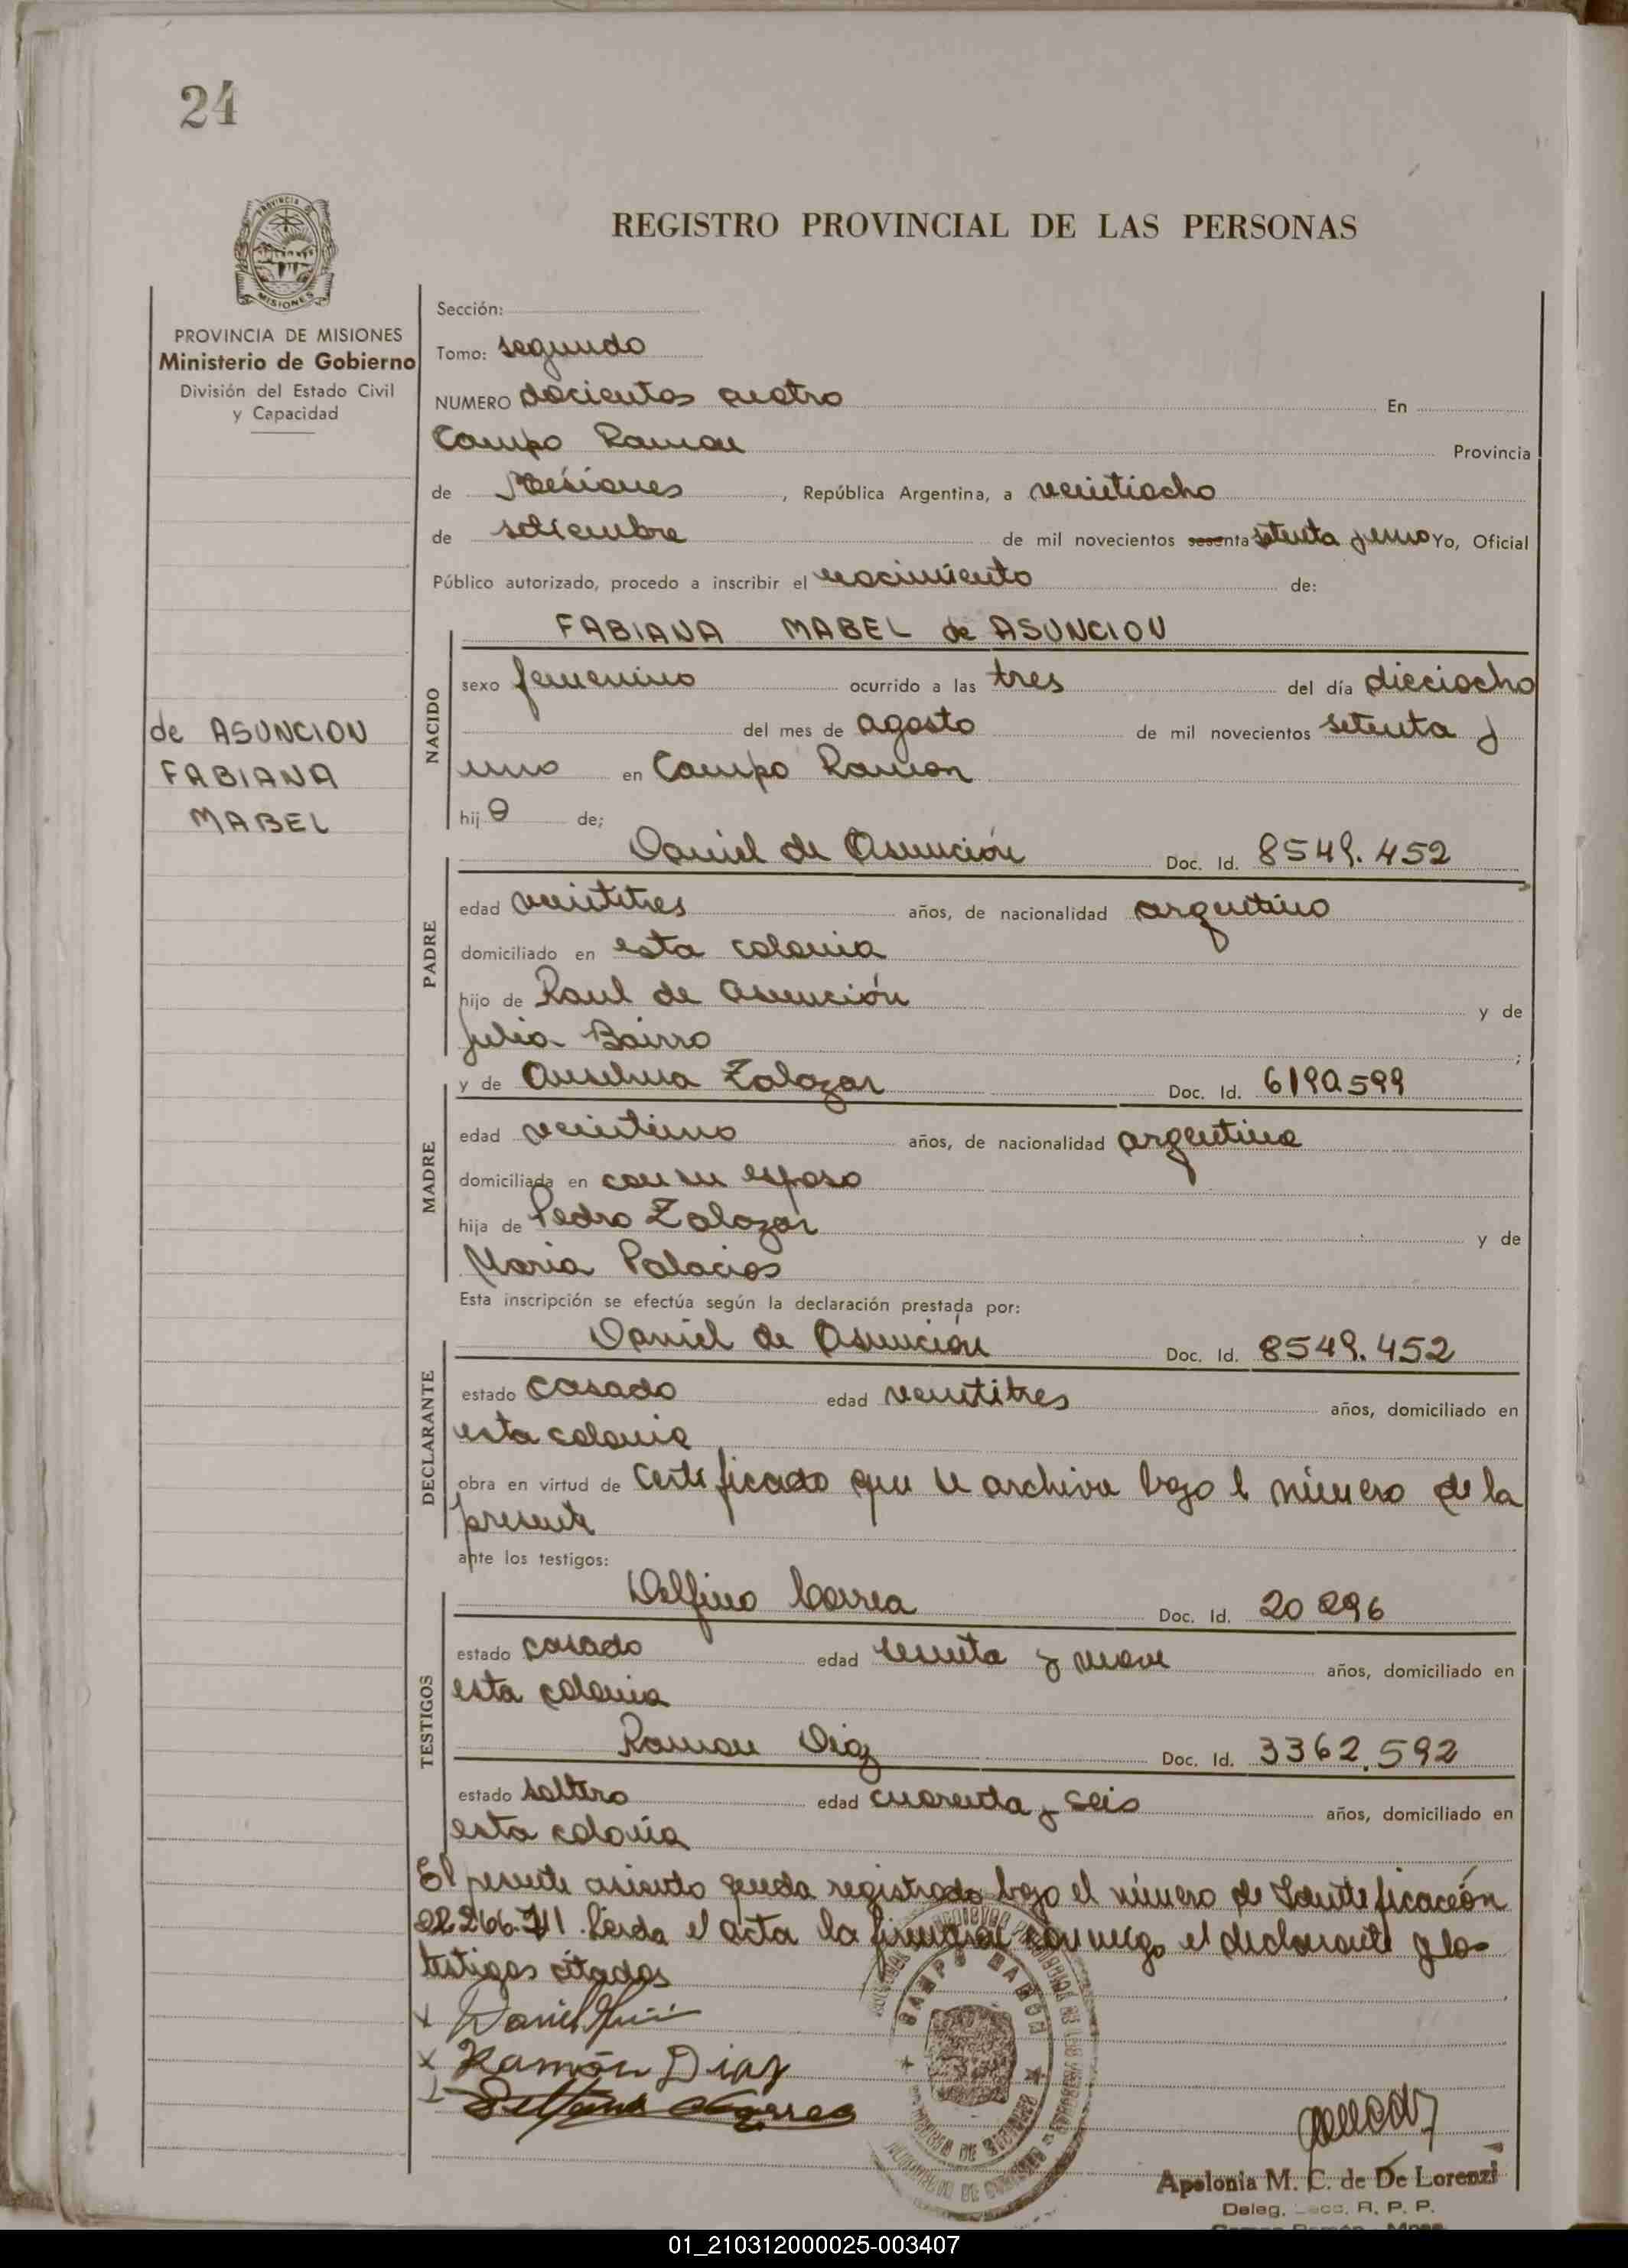 24
REGISTRO PROVINCIAL DE LAS PERSONAS
PROVINCIA DE MISIONES
Ministerio de Gobierno
División del Estado Civil
y Capacidad
de ASUNCION
FABIANA
MABEL
Sección:
Tomo: segundo
NUMERO docientos cuatro En
Campo Ramon Provincia
de Misiones, República Argentina, a veintiocho
de setiembre de mil novecientos sesenta setenta y uno Yo, Oficial
Público autorizado, procedo a inscribir el nacimiento de:
NACIDO
FABIANA MABEL de ASUNCION
sexo femenino ocurrido a las tres del día dieciocho
del mes de agosto de mil novecientos setenta y
uno en Campo Ramon
hija de;
PADRE
Daniel de Asunción Doc. Id. 8549.452
edad veintitres años, de nacionalidad argentino
domiciliado en esta colonia
hijo de Raul de Asunción y de
Julia Bairro ;
MADRE
y de Anselma Zalazar Doc. Id. 6190599
edad veintiuno años, de nacionalidad argentina
domiciliada en con su esposo
hija de Pedro Zalazar y de
Maria Palacios
Esta inscripción se efectúa según la declaración prestada por:
DECLARANTE
Daniel de Asunción Doc. Id. 8549.452
estado casado edad veintitres años, domiciliado en
esta colonia
obra en virtud de certificado que se archiva bajo el número de la
presente
ante los testigos:
TESTIGOS
Delfino Correa Doc. Id. 20
estado casado edad y nueve años, domiciliado en
esta colonia
Ramon Diaz Doc. Id. 3362.592
estado soltero edad cuarenta y seis años, domiciliado en
esta colonia
El presente asiento queda registrado bajo el número de Identificación
22266.711. Leida el acta la firman conmigo el declarante y los
testigos citados
x Daniel
x Ramón Diaz
CAMPO RAMON
Apolonia M. C. de De Lorenzi
Deleg. Secc. R. P. P.
Campo Ramón - Mnes.
01_210312000025-003407